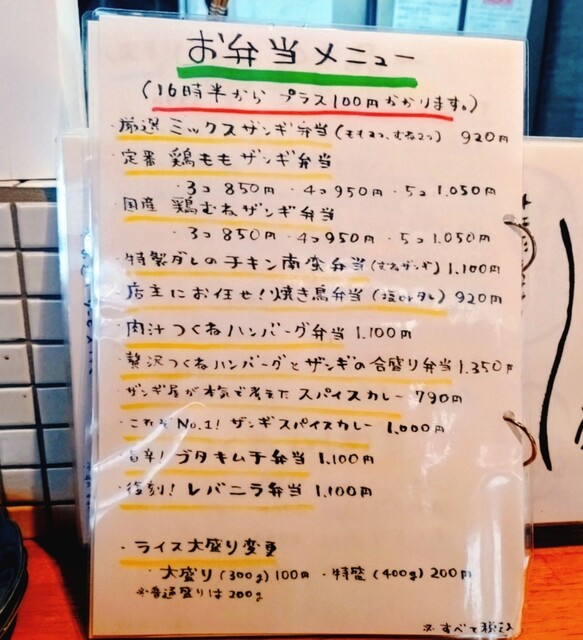 お弁当メニュー
(16時半から プラス100円かかります。)
・厳選 ミックスザンギ弁当(もも2コ、むね2コ) 920円
・定番 鶏ももザンギ弁当
・3コ 850円 ・4コ 950円 ・5コ 1.050円
・国産 鶏むねザンギ弁当
・3コ 850円 ・4コ 950円 ・5コ 1.050円
・特製ダレのチキン南蛮弁当(むねザンギ) 1.100円
・店主にお任せ!焼き鳥弁当(塩orタレ) 920円
・肉汁つくねハンバーグ弁当 1.100円
・贅沢つくねハンバーグとザンギの合盛り弁当 1.350円
・ザンギ屋が本気で考えた スパイスカレー 790円
・これぞNo.1! ザンギスパイスカレー 1.000円
・旨辛! ブタキムチ弁当 1.100円
・復刻! レバニラ弁当 1.100円
・ライス大盛り変更
・大盛り(300g)100円 ・特盛(400g)200円
※普通盛りは200g
※すべて税込